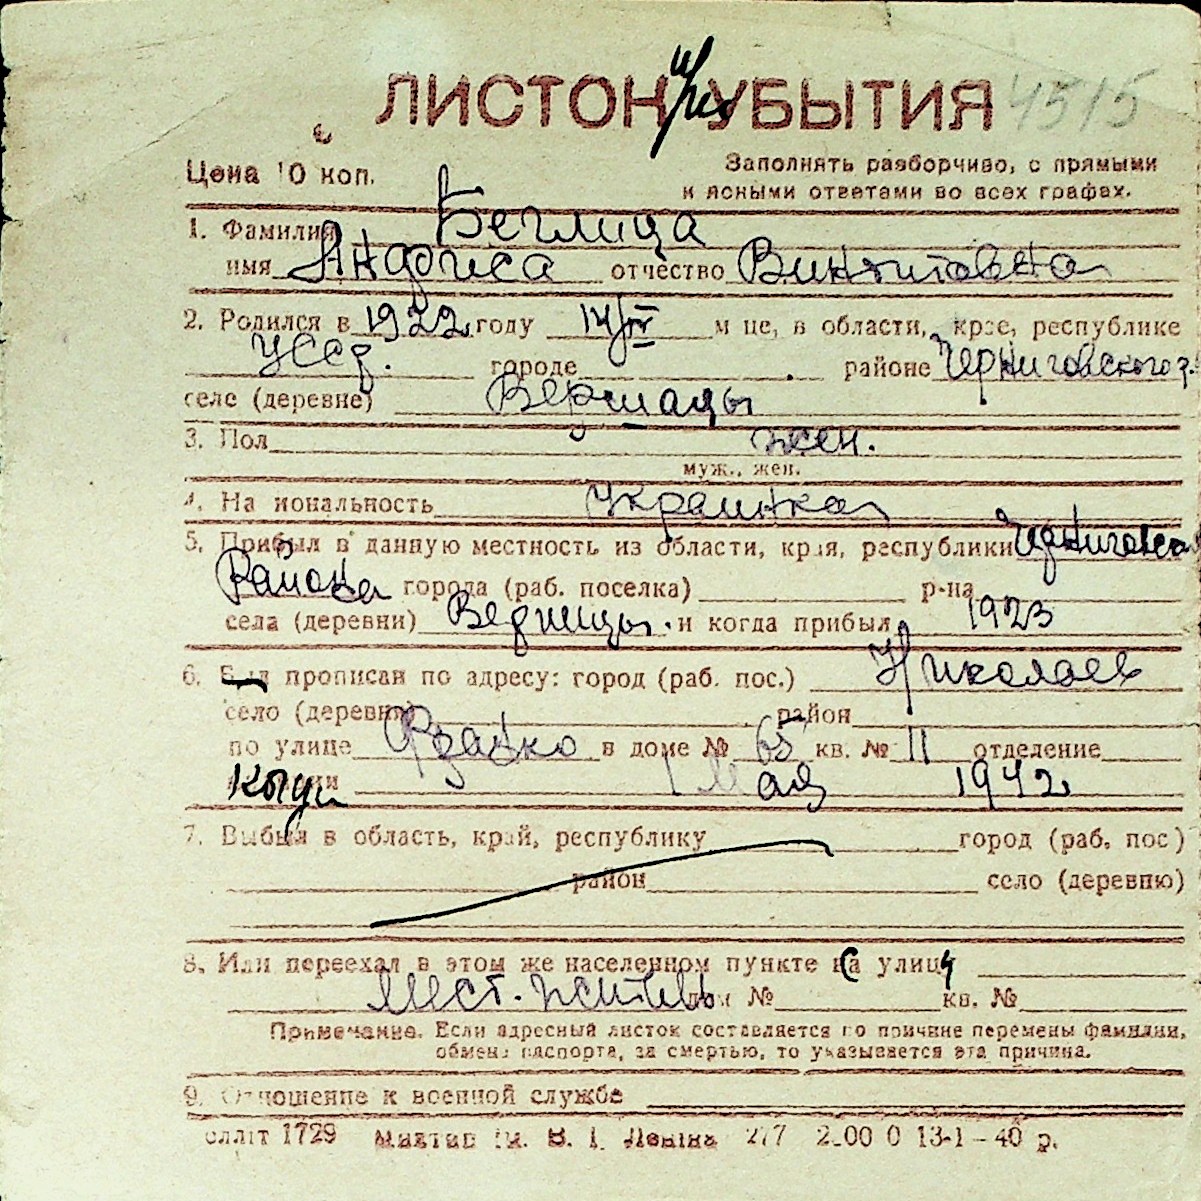 ЛИСТОК УБЫТИЯ 4515
Цена 10 коп. Заполнять разборчиво, с прямыми
и ясными ответами во всех графах.
1. Фамилия Беглица
имя отчество
2. Родился в 1922 году 14/IV м-це, в области, крае, республике
УССР. городе районе Черниговского р.
селе (деревне)
3. Пол жен.
муж., жен.
4. Национальность Украинка
5. Прибыл в данную местность из области, края, республики
Района города (раб. поселка) р-на
села (деревни) и когда прибыл 1923
6. Был прописан по адресу: город (раб. пос.) Николаев
село (деревня) район
по улице Франко в доме № 65 кв. № 11 отделение
1 Мая 1942
7. Выбыл в область, край, республику город (раб. пос)
район село (деревню)
8. Или переехал в этом же населенном пункте на улицу
Мест. житель дом № кв. №
Примечание. Если адресный листок составляется по причине перемены фамилии,
обмена паспорта, за смертью, то указывается эта причина.
9. Отношение к военной службе
1729 Леніна 13-1-40 р.